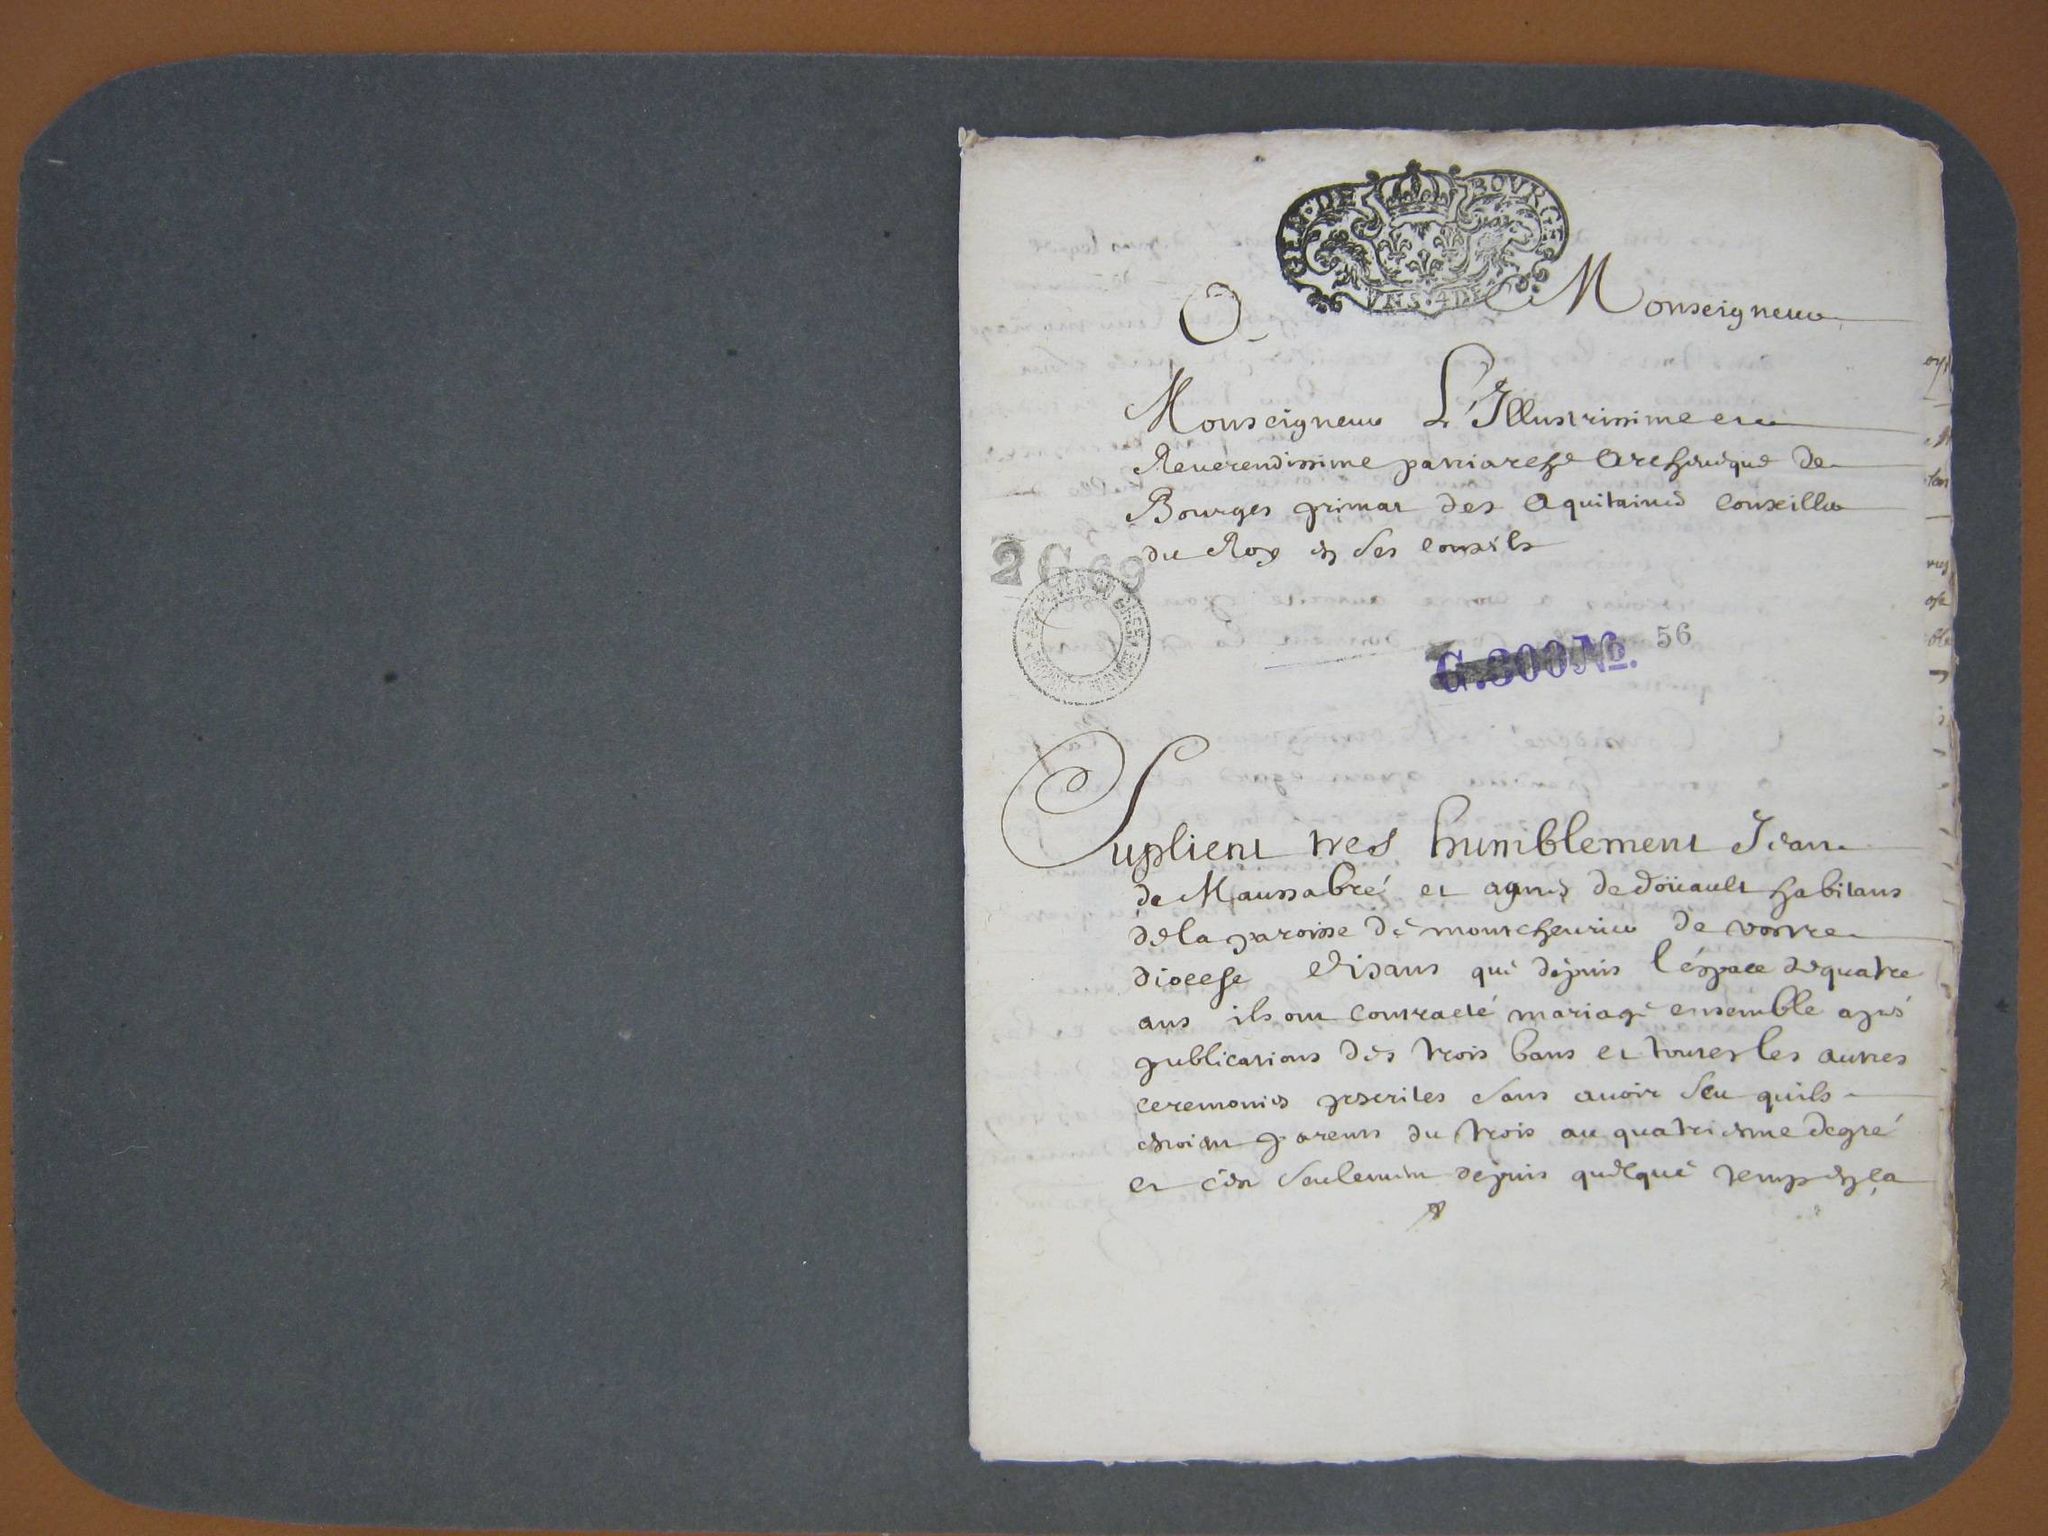 GEN. DE BOURGES
VNS. 4 DE
A Monseigneur
Monseigneur L'Illustrissime et
Reuerendissime patriarche Archeuêque de
Bourges primat des Aquitaines Conseiller
du Roy en ses conseils
2 G 69
G.300 No. 56
Suplient tres humblement Jean
de Maussabré et agnes de doüault habitans
de la paroisse de montcheurier de vostre
diocese disans que depuis l'éspace de quatre
ans ils ont contracté mariage ensemble apres
publications des trois bans et toutes les autres
ceremonies prescrites sans auoir sceu quils
estoient parents du trois au quatriesme degré
et c'est seulement depuis quelque temps en ça